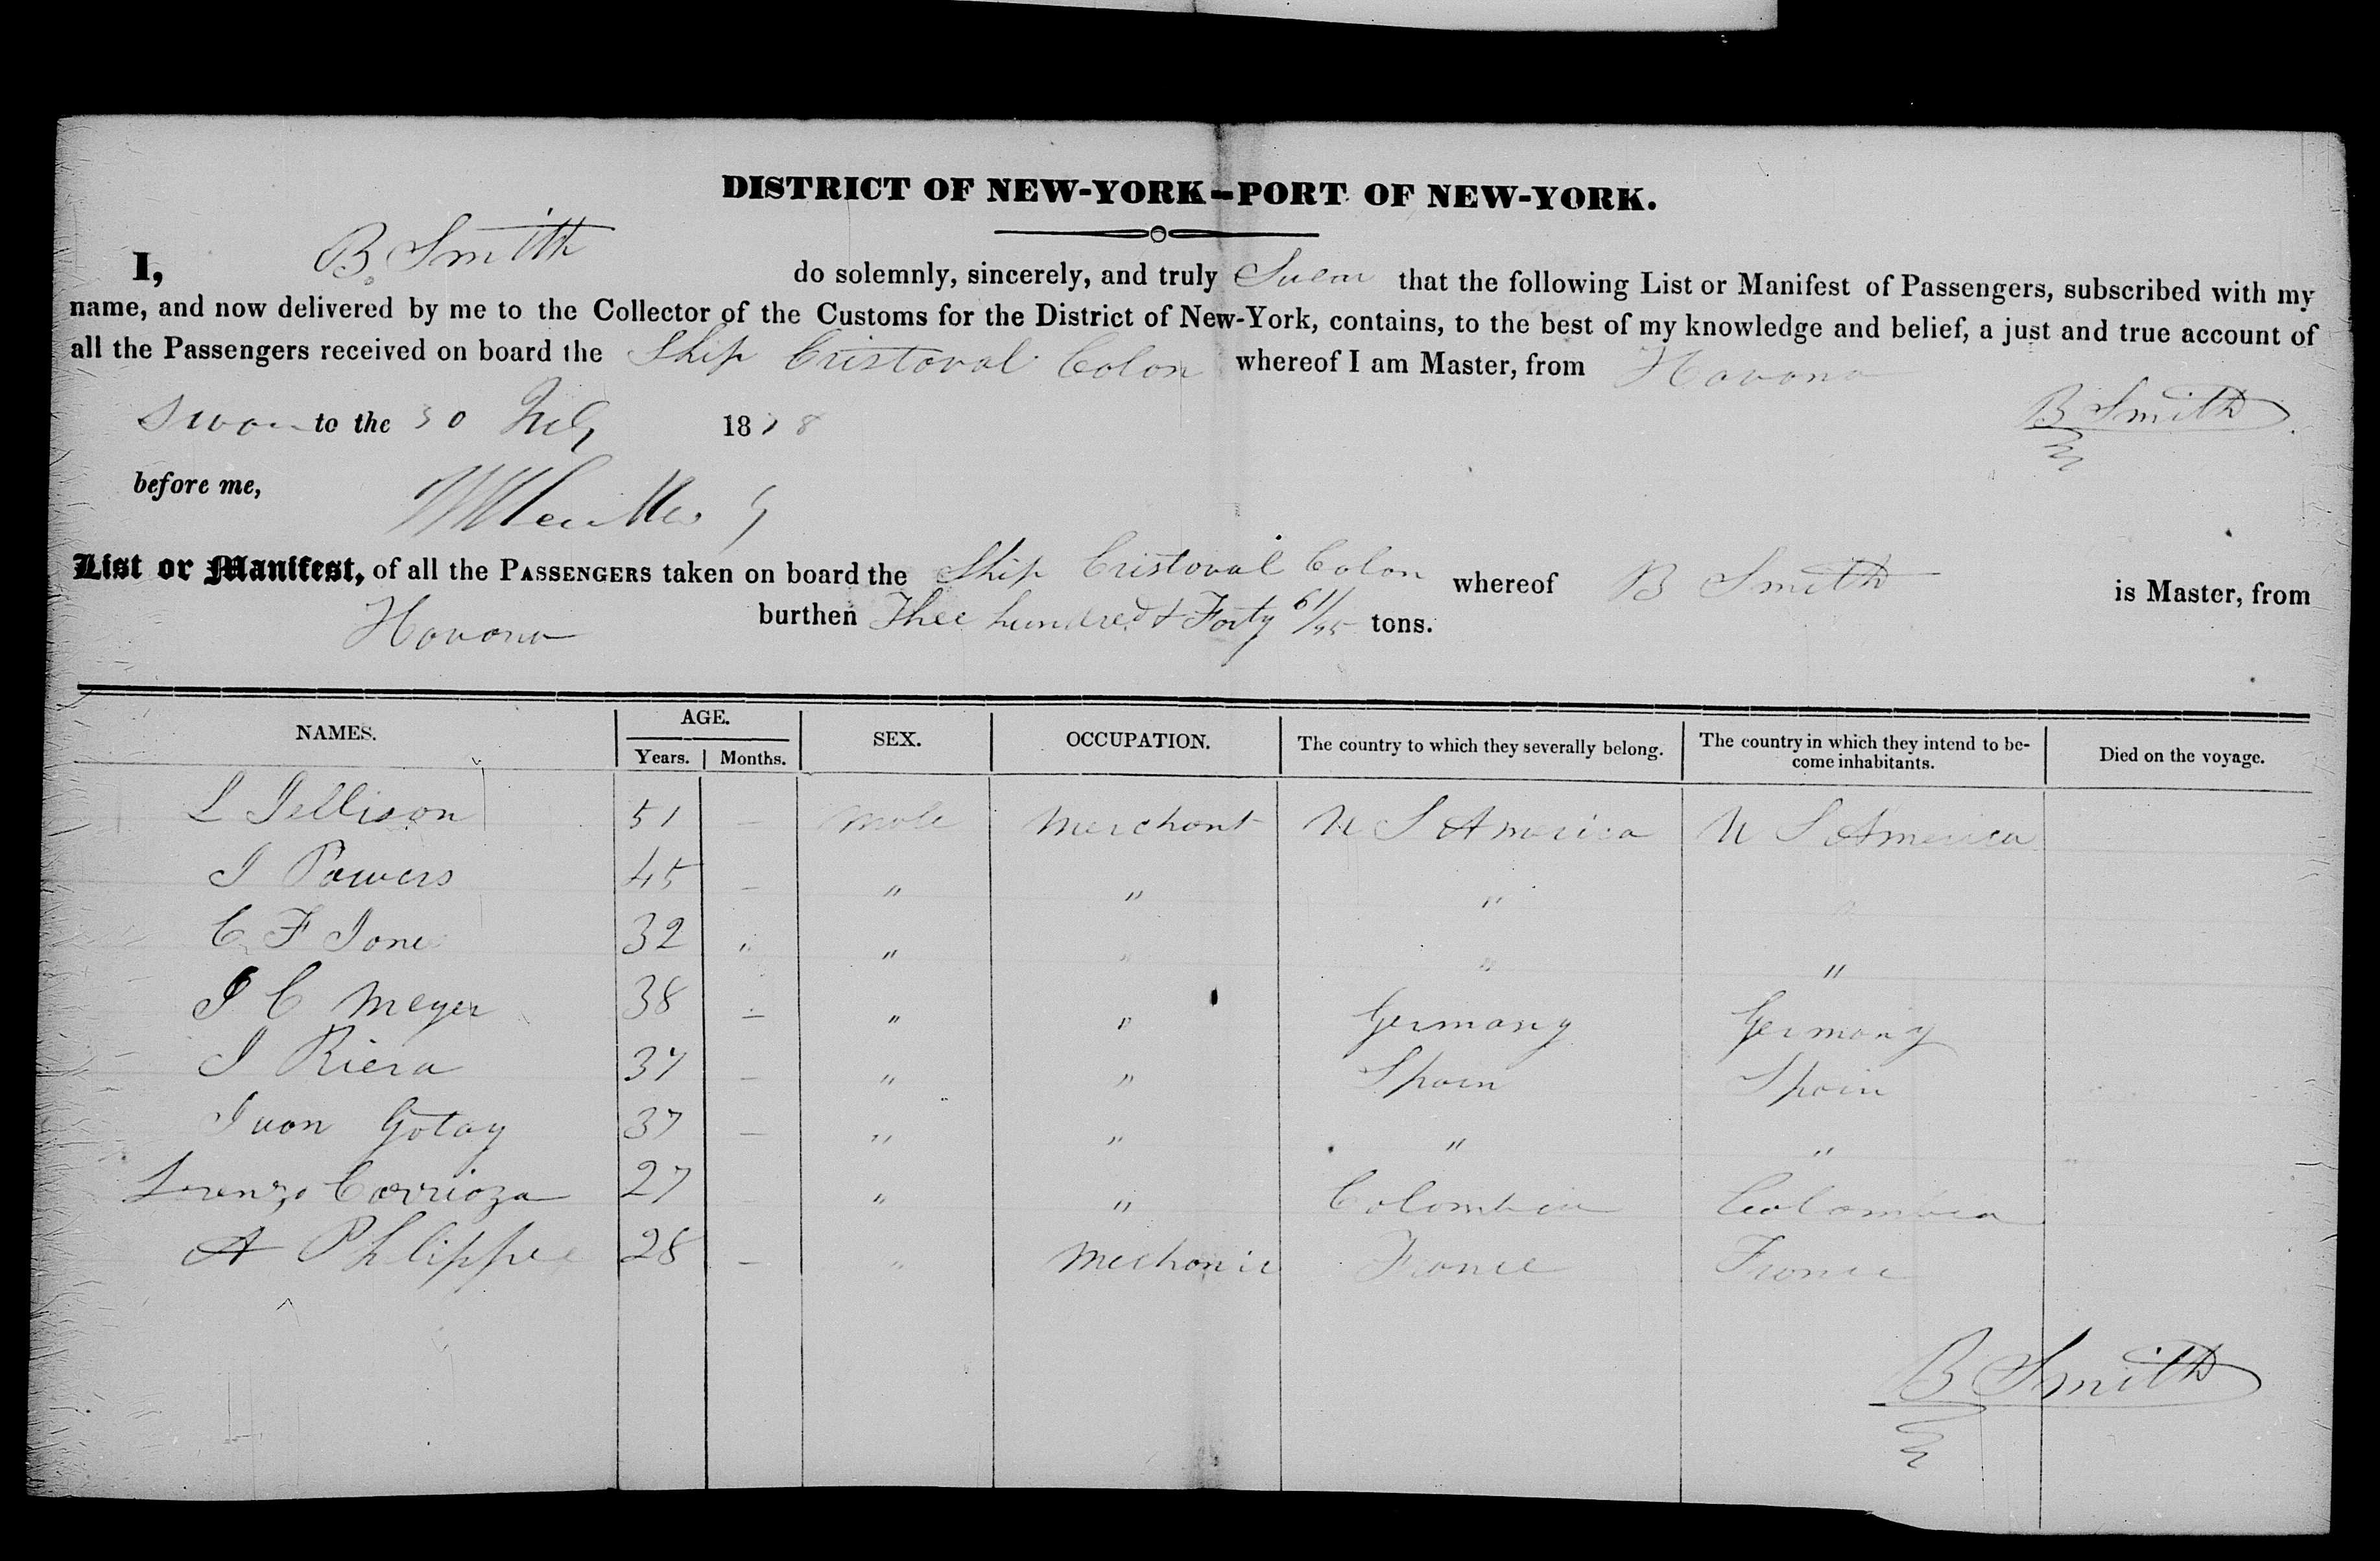 DISTRICT OF NEW-YORK--PORT OF NEW-YORK.
I, B. Smith do solemnly, sincerely, and truly that the following List or Manifest of Passengers, subscribed with my
name, and now delivered by me to the Collector of the Customs for the District of New-York, contains, to the best of my knowledge and belief, a just and true account of
all the Passengers received on board the Ship Cristoval Colon whereof I am Master, from Havana
to the 30 18 8 B Smith
before me,
List or Manifest, of all the PASSENGERS taken on board the Ship Cristoval Colon whereof B Smith is Master, from
Havana burthen Thee hundred & Forty 61/95 tons.
NAMES. AGE. SEX. OCCUPATION. The country to which they severally belong. The country in which they intend to be-come inhabitants. Died on the voyage.
Years. Months.
L Jellison 51 – Male Merchant U S America U S America
J Powers 45 – " " " "
C F Jone 32 " " " " "
J C Meyer 38 – " " Germany Germany
J Riera 37 – " " Spain Spain
Juan Gotay 37 – " " " "
Lorenzo Carrioza 27 " " Colombia Colombia
A Phlippee 28 – " Mechanic France France
B Smith